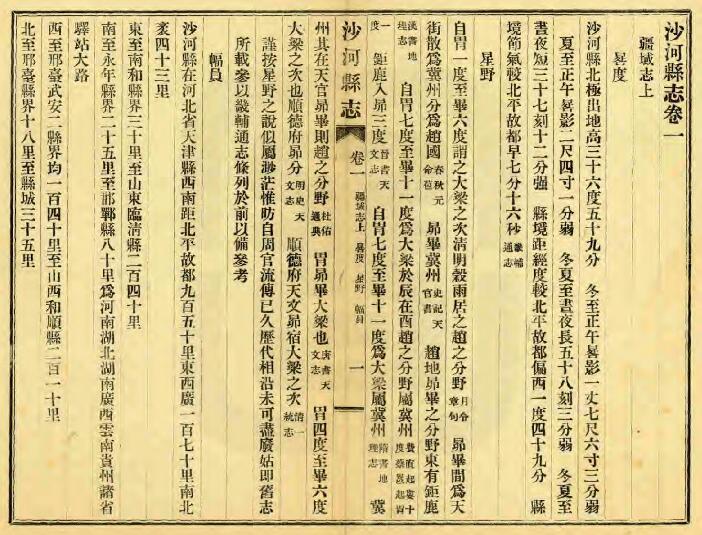 沙河縣志卷一
疆域志上
晷度
沙河縣北極出地高三十六度五十九分 冬至正午晷影一丈七尺六寸三分弱
夏至正午晷影二尺四寸一分弱 冬夏至晝夜長五十八刻三分弱 冬夏至
晝夜短三十七刻十二分強 縣境距經度較北平故都偏西一度四十九分 縣
境節氣較北平故都早七分十六秒畿輔通志
星野
自胃一度至畢六度謂之大梁之次清明穀雨居之趙之分野月令章句 昴畢間爲天
街散爲冀州分爲趙國春秋元命苞 昴畢冀州史記天官書 趙地昴畢之分野東有鉅鹿
漢書地理志 自胃七度至畢十一度爲大梁於辰在酉趙之分野屬冀州費直起婁十度蔡邕起胃一
度 鉅鹿入昴三度晉書天文志 自胃七度至畢十一度爲大梁屬冀州隋書地理志 冀
沙河縣志 卷一 疆域志上 晷度 星野 幅員 一
州其在天官昴畢則趙之分野杜佑通典 胃昴畢大梁也唐書天文志 胃四度至畢六度
大梁之次也順德府昴分明史天文志 順德府天文昴宿大梁之次清一統志
謹按星野之說似屬渺茫惟昉自周官流傳已久歷代相沿未可盡廢姑卽舊志
所載參以畿輔通志條列於前以備參考
幅員
沙河縣在河北省天津縣西南距北平故都九百五十里東西廣一百七十里南北
袤四十三里
東至南和縣界三十里至山東臨清縣二百四十里
南至永年縣界二十五里至邯鄲縣八十里爲河南湖北湖南廣西雲南貴州諸省
驛站大路
西至邢臺武安二縣界均一百四十里至山西和順縣二百一十里
北至邢臺縣界十八里至縣城三十五里